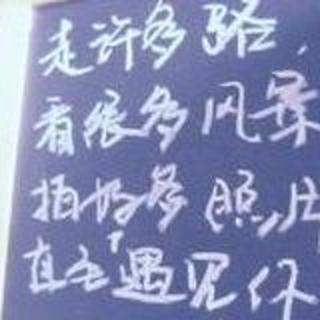 走许多路，
看很多风景
拍好多照片
直至遇见你